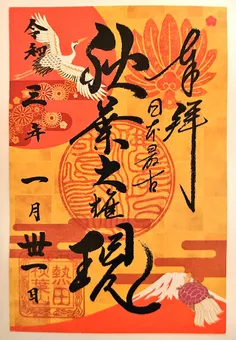 奉拝
日本最古
秋葉大権現
令和三年一月卅一日
熱田
秋葉